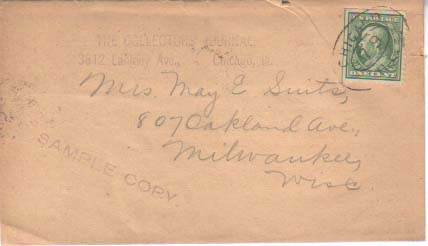 THE COLLECTORS JOURNAL
3812 Ave., Chicago, Ill.
ONE CENT
Mrs. May E Suits,
807 Oakland Ave.,
Milwaukee,
Wisc.
SAMPLE COPY